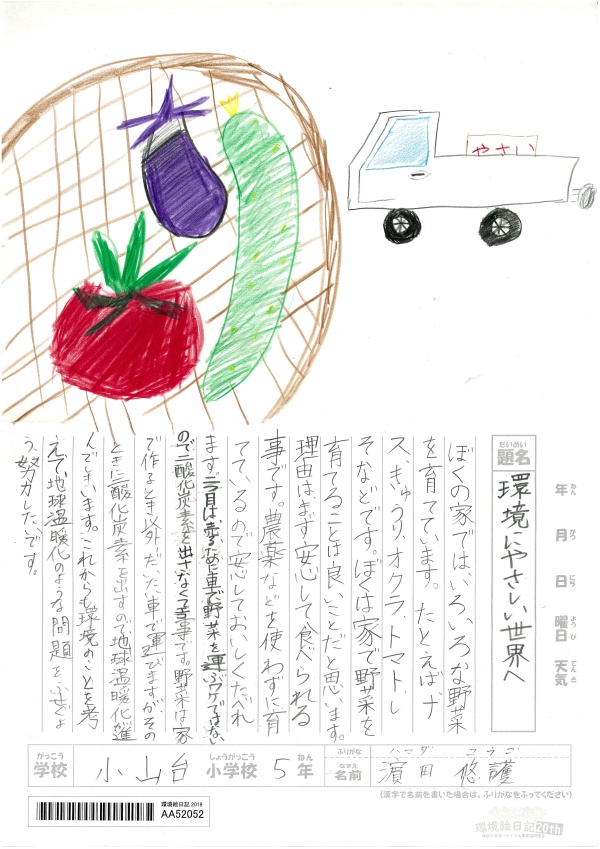 やさい
だいめい
題名
環境にやさしい世界へ
年 ねん
月 がつ
日 にち
曜日 ようび
天気 てんき
ぼくの家ではいろいろな野菜
を育てています。たとえば、ナ
ス、きゅうり、オクラ、トマト、レ
そなどです。ぼくは家で野菜を
育てることは良いことだと思います。
理由は、まず安心して食べられる
事です。農薬などを使わずに育
てているので安心しておいしくたべれ
ます。二つ目は売るために車で野菜を運ぶワケではない
ので二酸化炭素を出さなくてすむ事です。野菜は家
で作るとき以外だったら車で運びますがその
ときに二酸化炭素を出すので地球温暖化が進
んでしまいます。これからも環境のことを考
えて、地球温暖化のような問題をふせげるよ
う、努力したいです。
がっこう
学校
小山台
しょうがっこう
小学校
5
ねん
年
ふりがな
ハマダ ユウゴ
なまえ
名前
濱田 悠護
(漢字で名前を書いた場合は、ふりがなをふってください)
環境絵日記 2018
AA52052
環境絵日記 20th